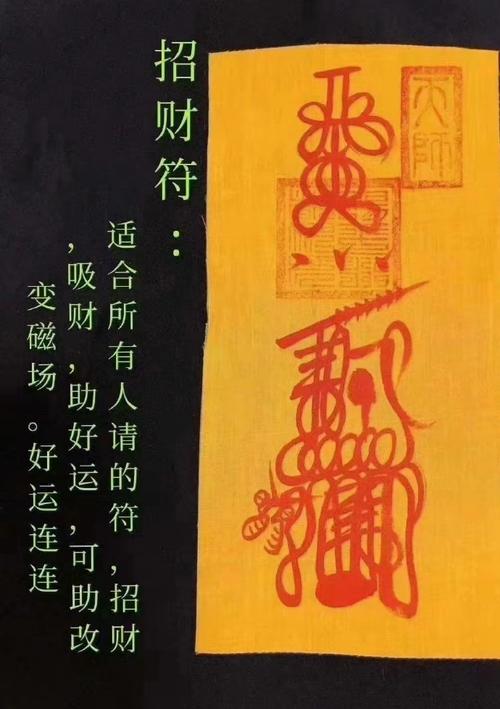 招财符：
适合所有人请的符，招财
，吸财，助好运，可助改
变磁场。好运连连
天师